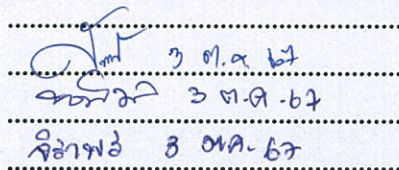 3 ต.ค. 67
3 ต.ค. 67
จิราพร 3 ต.ค. 67